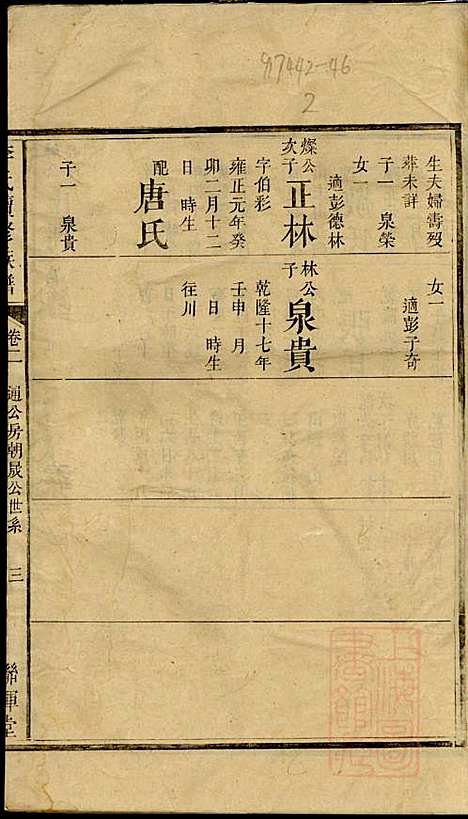 97442-46
2
生夫婦壽歿
葬未詳
子一 泉榮
女一
適彭德林
燦公次子 正林
字伯彩
雍正元年癸
卯二月十二
日 時生
配 唐氏
子一 泉貴
女一
適彭子奇
林公子 泉貴
乾隆十七年
壬申 月
日 時生
往川
氏續修族譜
卷二 通公房朝晟公世系 三
聯軍堂
上海圖書館藏